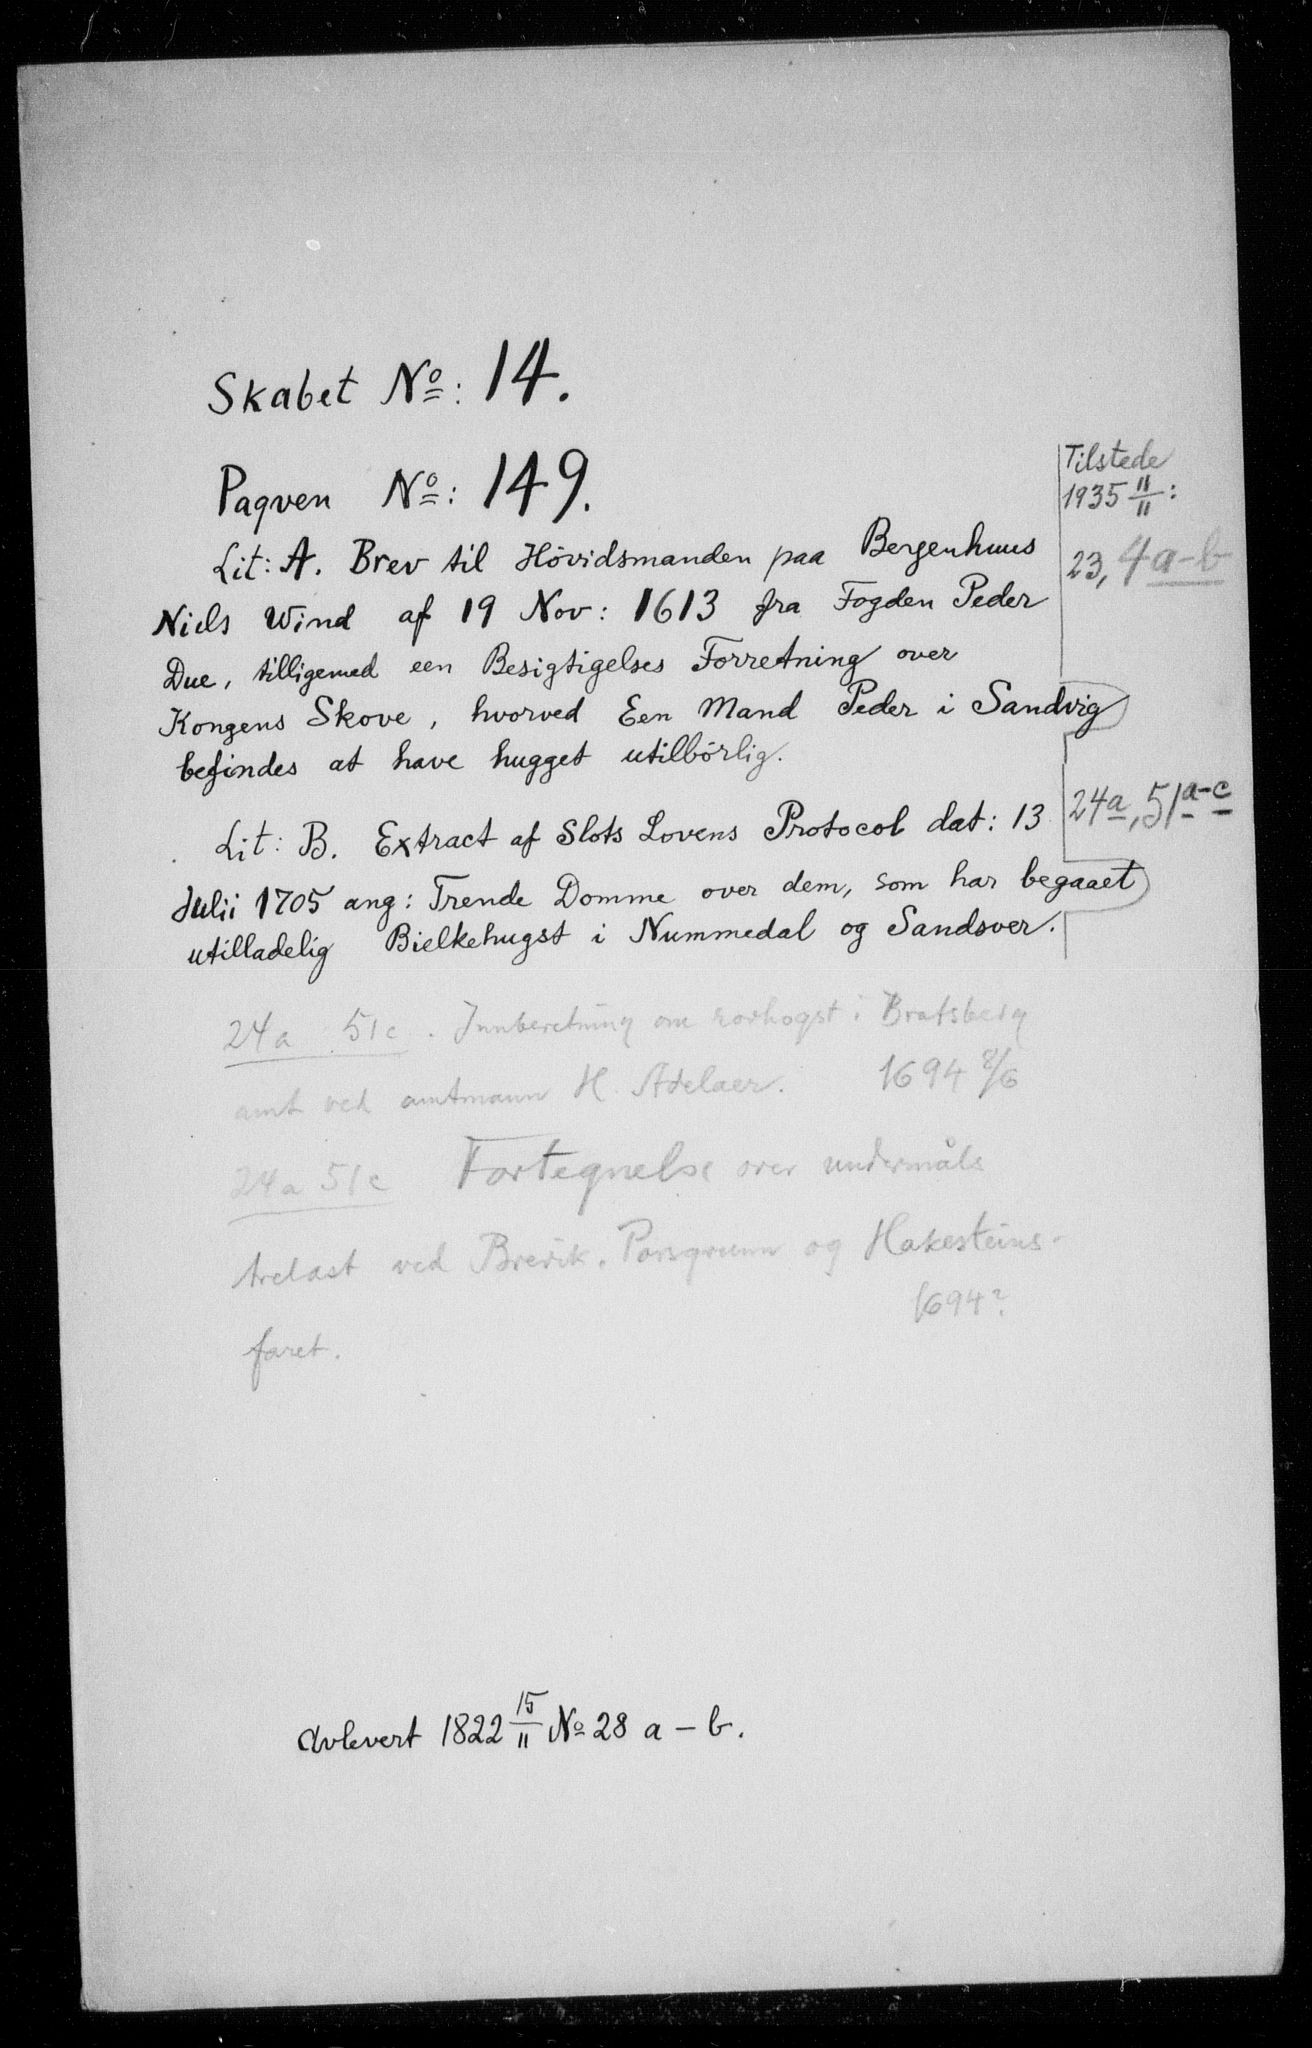 Skabet No: 14.
Paqven No: 149.
Tilstede
1935 11/11:
Lit: A. Brev til Hövidsmanden paa Bergenhuus
23, 4a-b
Niels Wind af 19 Nov: 1613 fra Fogden Peder
Due, tilligemed een Besigtigelses Forretning over
Kongens Skove, hvorved Een Mand Peder i Sandvig
befindes at have hugget utilbörlig.
Lit: B. Extract af Slots Lovens Protocol dat: 13
24a, 51a-c
Julii 1705 ang: Trende Domme over dem, som har begaaet
utilladelig Bielkehugst i Nummedal og Sandsver.
24a 51c. Innberetning om rovhogst i Bratsberg
amt ved amtmann H. Adelaer. 1694 8/6
24a 51c Fortegnelse over undermåls
trelast ved Brevik, Porsgrunn og Hakesteins-
1694?
faret.
Avlevert 1822 15/11 No 28 a-b.